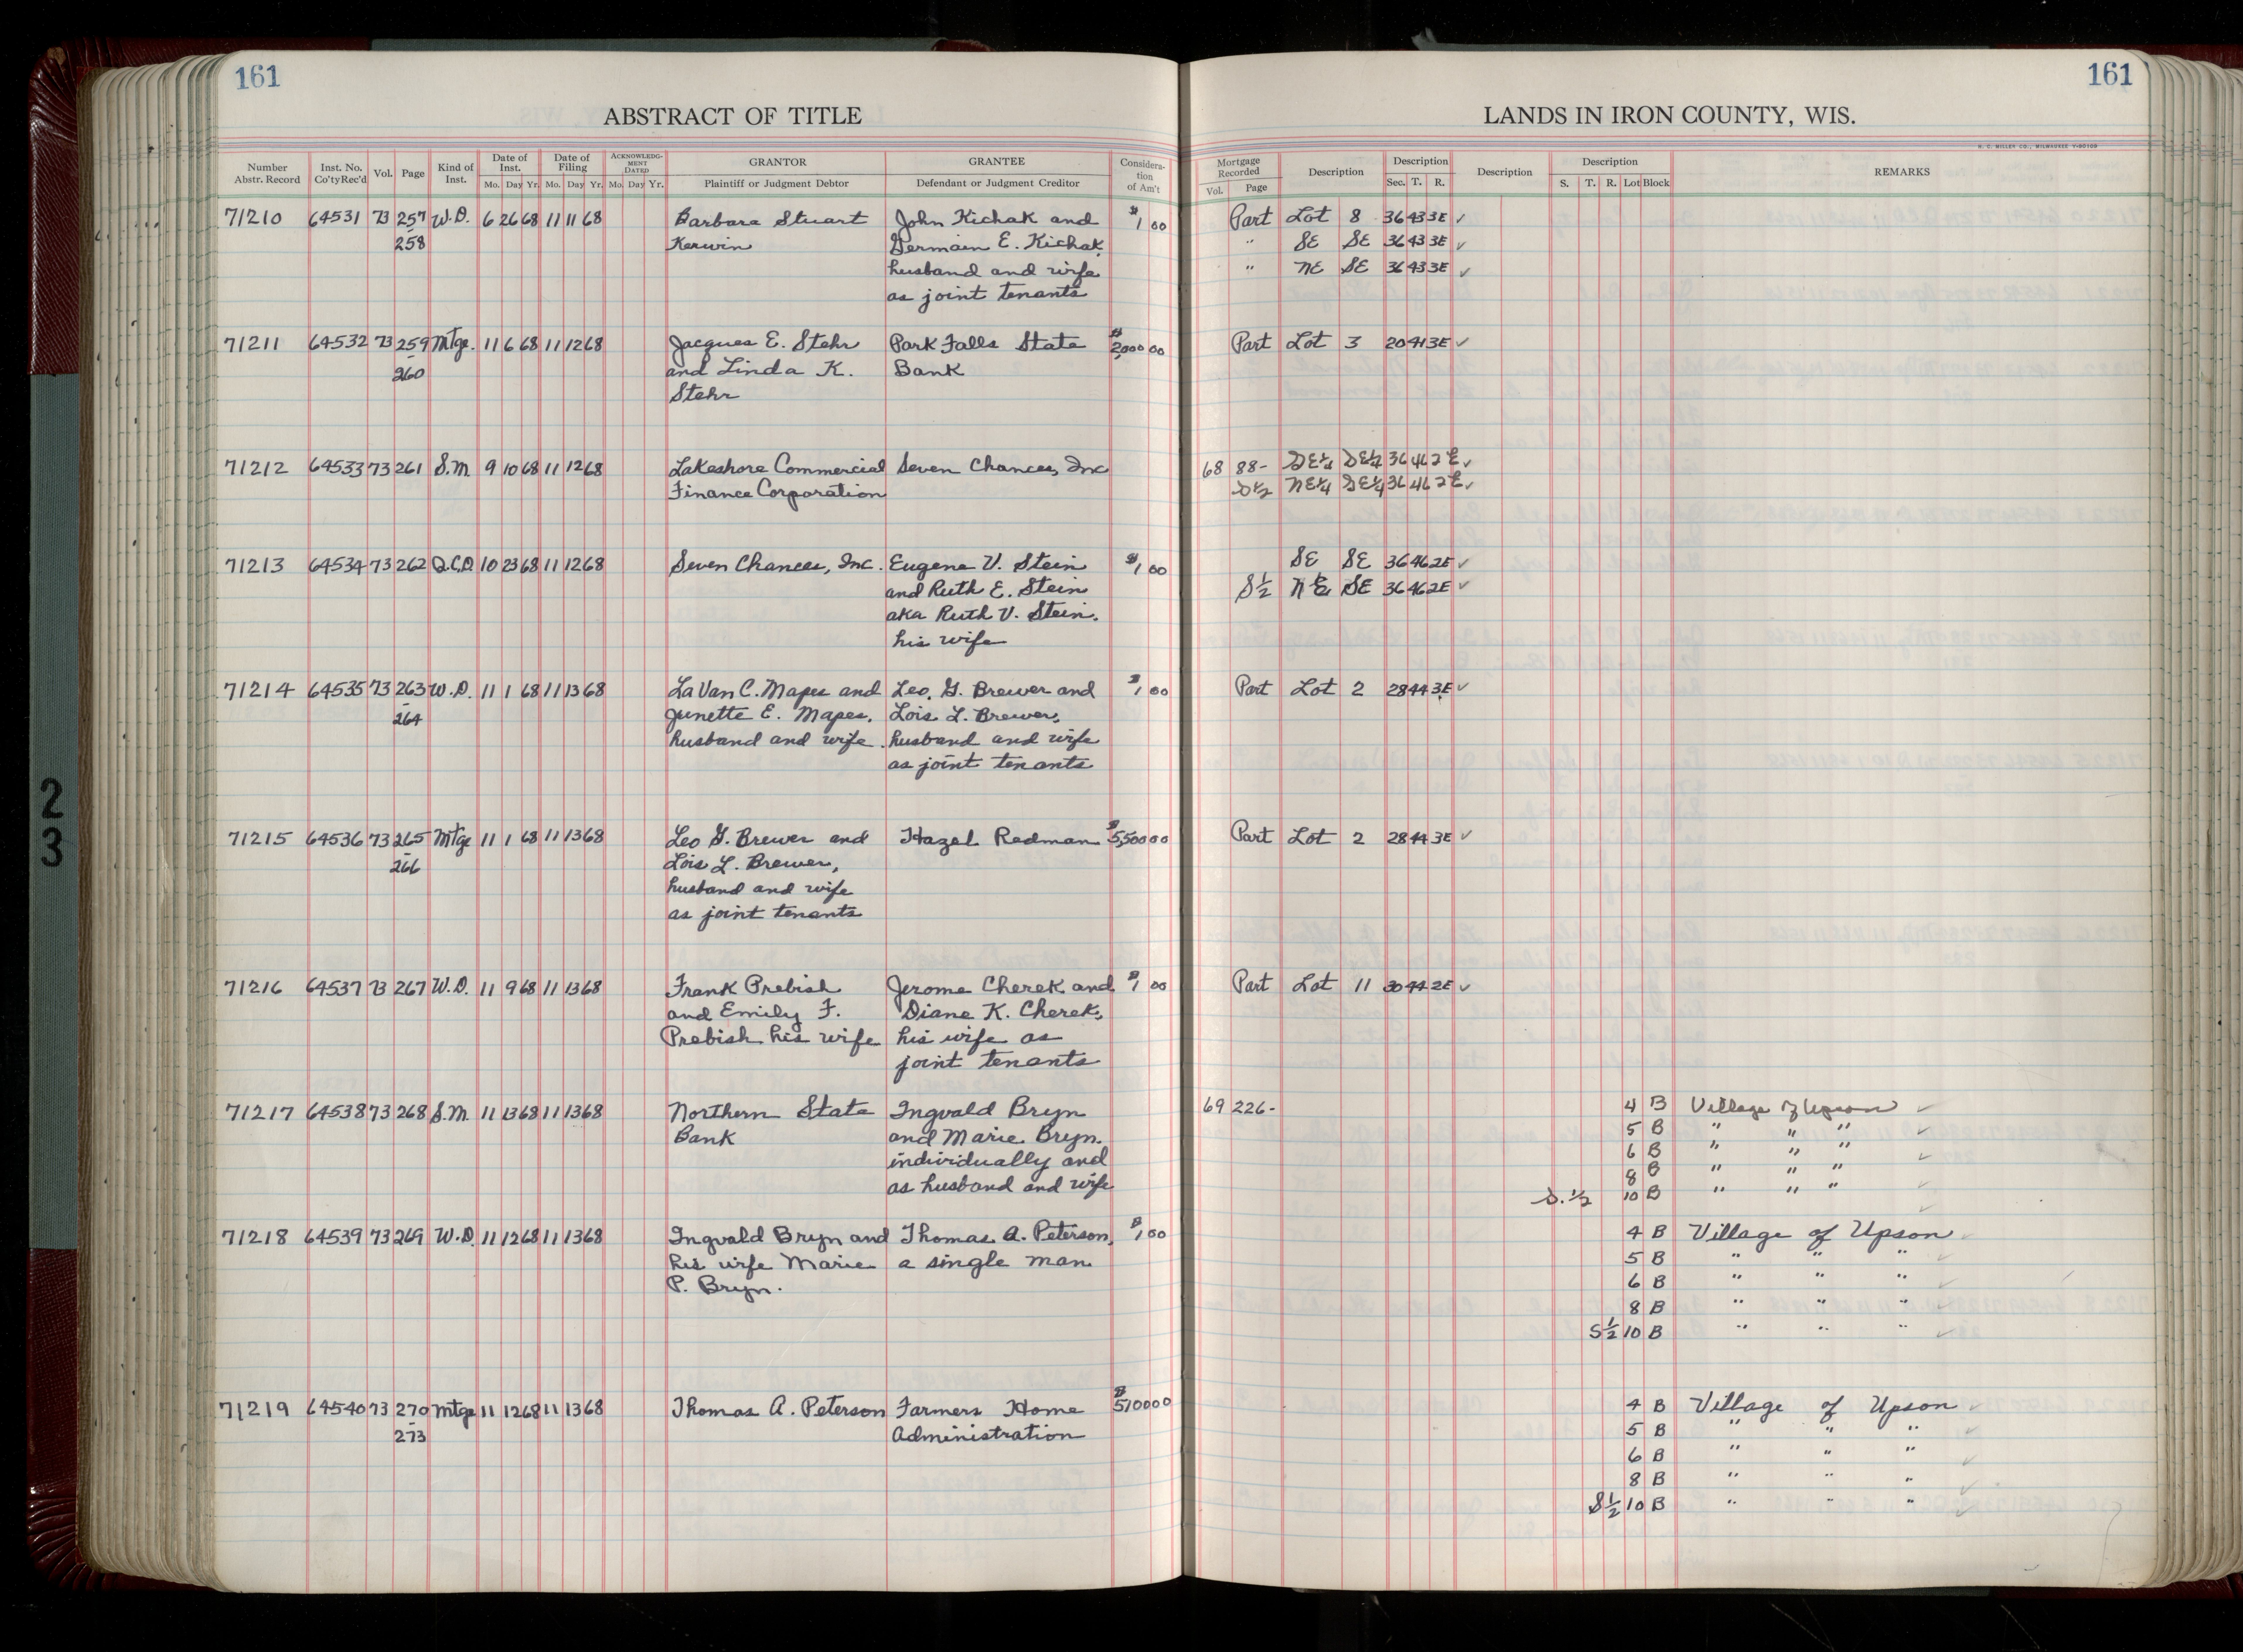 161
161
ABSTRACT OF TITLE
LANDS IN IRON COUNTY, WIS.
H. C. MILLER CO., MILWAUKEE
Number Abstr. Record Inst. No. Co'ty Rec'd Vol. Page Kind of Inst. Date of Inst. Mo. Day Yr. Date of Filing Mo. Day Yr. ACKNOWLEDGMENT DATED Mo. Day Yr. GRANTOR Plaintiff or Judgment Debtor GRANTEE Defendant or Judgment Creditor Consideration of Am't Mortgage Recorded Vol. Page Description Description Sec. T. R. Description Description S. T. R. Lot Block REMARKS
71210 64531 73 257 W.D. 6 26 68 11 11 68 Barbara Stuart John Kichak and $1 00 Part Lot 8 36 43 3E ✓
- 258 Kerwin Germain E. Kichak, " SE SE 36 43 3E ✓
husband and wife " NE SE 36 43 3E ✓
as joint tenants
71211 64532 73 259 Mtge. 11 6 68 11 12 68 Jacques E. Stehr Park Falls State $2,000 00 Part Lot 3 20 41 3E ✓
- 260 and Linda K. Bank
Stehr
71212 64533 73 261 S.M. 9 10 68 11 12 68 Lakeshore Commercial Seven Chances, Inc 68 88- SE¼ SE¼ 36 46 2E ✓
Finance Corporation S½ NE¼ SE¼ 36 46 2E ✓
71213 64534 73 262 Q.C.D. 10 23 68 11 12 68 Seven Chances, Inc. Eugene V. Stein $1 00 SE SE 36 46 2E ✓
and Ruth E. Stein S½ NE SE 36 46 2E ✓
aka Ruth V. Stein,
his wife
71214 64535 73 263 W.D. 11 1 68 11 13 68 LaVan C. Mapes and Leo. G. Brewer and $1 00 Part Lot 2 28 44 3E ✓
- 264 Junette E. Mapes, Lois L. Brewer,
husband and wife. husband and wife
as joint tenants
71215 64536 73 265 Mtge 11 1 68 11 13 68 Leo G. Brewer and Hazel Redman $5,500 00 Part Lot 2 28 44 3E ✓
- 266 Lois L. Brewer,
husband and wife
as joint tenants
71216 64537 73 267 W.D. 11 9 68 11 13 68 Frank Prebish Jerome Cherek and $1 00 Part Lot 11 30 44 2E ✓
and Emily F. Diane K. Cherek,
Prebish his wife his wife as
joint tenants
71217 64538 73 268 S.M. 11 13 68 11 13 68 Northern State Ingvald Bryn 69 226- 4 B Village of Upson ✓
Bank and Marie Bryn. 5 B " " " ✓
individually and 6 B " " " ✓
as husband and wife 8 B " " " ✓
S. ½ 10 B " " " ✓
71218 64539 73 269 W.D. 11 12 68 11 13 68 Ingvald Bryn and Thomas A. Peterson, $1 00 4 B Village of Upson ✓
his wife Marie a single man 5 B " " " ✓
P. Bryn. 6 B " " " ✓
8 B " " " ✓
S½ 10 B " " " ✓
71219 64540 73 270 Mtge 11 12 68 11 13 68 Thomas A. Peterson Farmers Home $5100 00 4 B Village of Upson ✓
- 273 Administration 5 B " " " ✓
6 B " " " ✓
8 B " " " ✓
S½ 10 B " " " ✓
2
3